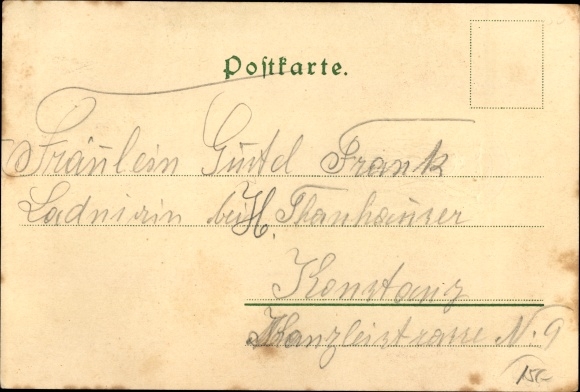 Postkarte.
Fräulein Gustel Frank
Ladnerin bei H. Thanhauser
Konstanz
Kanzleistrasse N. 9
15-